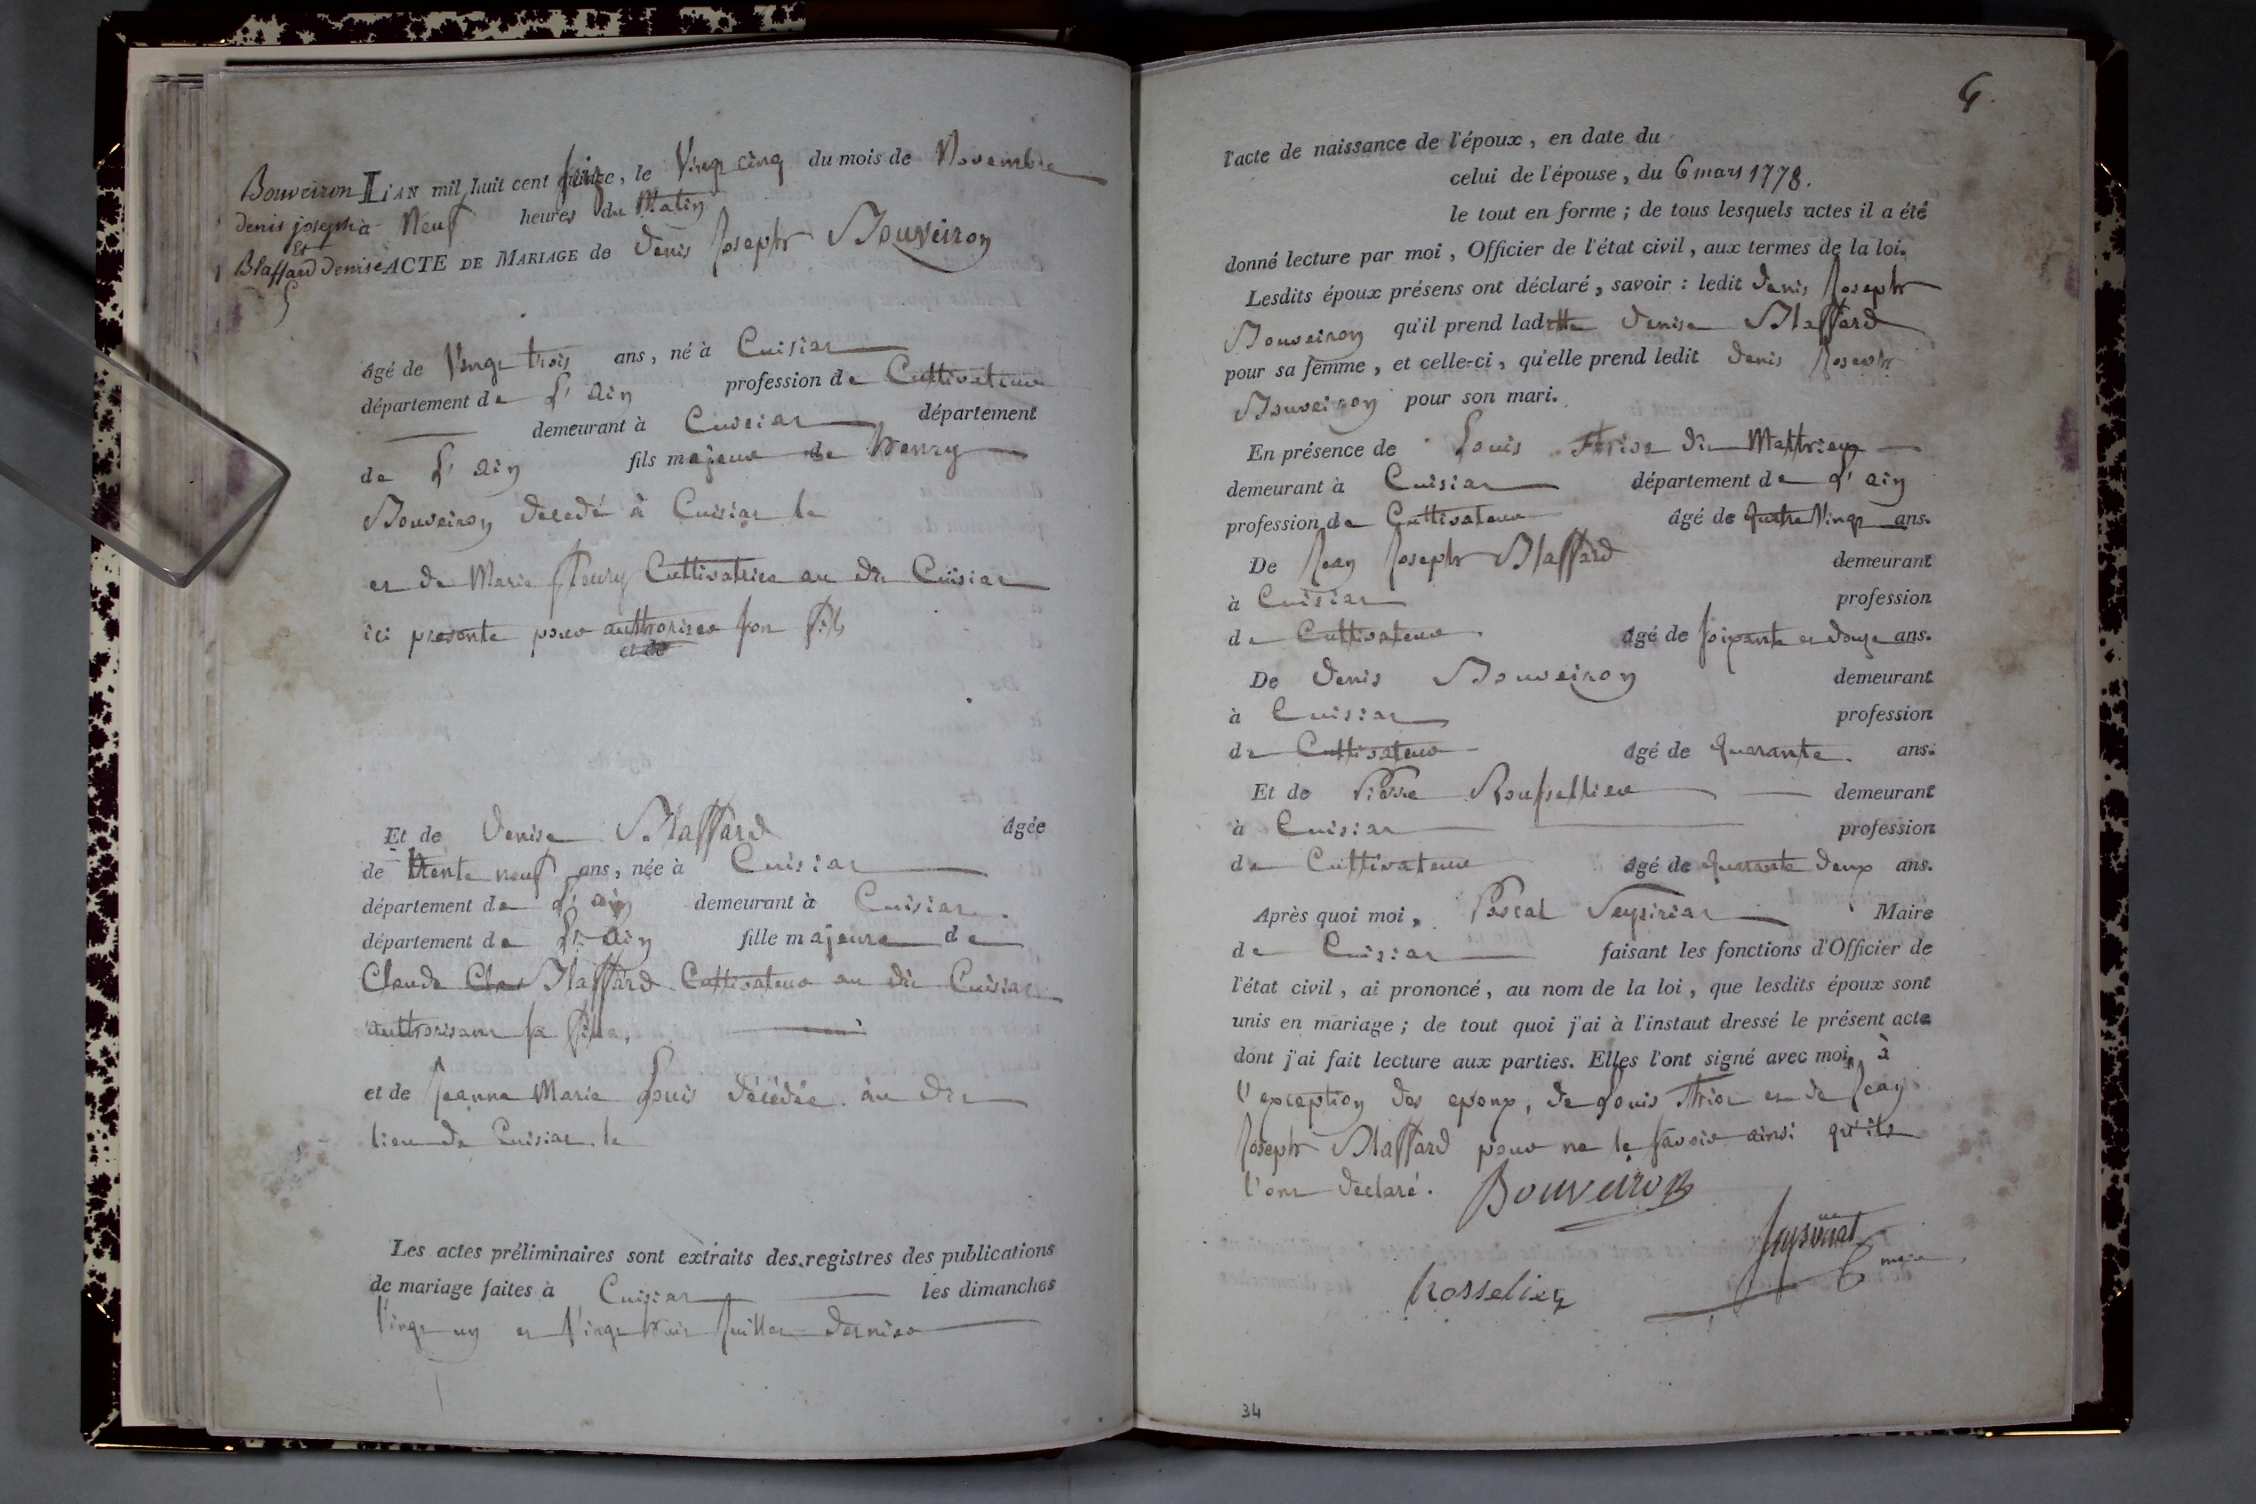 Bouveiron
denis joseph
Et
Blaffard denise
5
L'AN mil huit cent seize, le Vingt cinq du mois de Novembre
à Neuf heures du Matin
ACTE DE MARIAGE de Denis Joseph Bouveiron
âgé de Vingt trois ans, né à Cuisiat
département de L'ain profession de Cultivateur
demeurant à Cuisiat département
de L'ain fils majeur de henry
Bouveiron décedé à Cuisiat le
et de Marie Cultivatrice au dit Cuisiat
ici presente pour authoriser son fils
et de
Et de Denise Blaffard âgée
de trente neuf ans, née à Cuisiat
département de L'ain demeurant à Cuisiat
département de L'ain fille majeure de
Claude Blaffard Cultivateur au dit Cuisiat
authorisant sa fille,
et de Jeanne Marie Louis décédée au dit
lieu de Cuisiat le
Les actes préliminaires sont extraits des registres des publications
de mariage faites à Cuisiat les dimanches
Vingt un et Vingt huit Juillet dernier
6.
l'acte de naissance de l'époux, en date du
celui de l'épouse, du 6 mars 1778.
le tout en forme ; de tous lesquels actes il a été
donné lecture par moi, Officier de l'état civil, aux termes de la loi.
Lesdits époux présens ont déclaré, savoir : ledit Denis Joseph
Bouveiron qu'il prend laditte Denise Blaffard
pour sa femme, et celle-ci, qu'elle prend ledit Denis Joseph
Bouveiron pour son mari.
En présence de Louis dit
demeurant à Cuisiat département de L'ain
profession de Cultivateur âgé de quatre Vingt ans.
De Jean Joseph Blaffard demeurant
à Cuisiat profession
de Cultivateur. âgé de soixante et douze ans.
De Denis Bouveiron demeurant
à Cuisiat profession
de Cultivateur âgé de quarante. ans.
Et de Pierre Rousselier demeurant
à Cuisiat profession
de Cultivateur âgé de quarante deux ans.
Après quoi moi, Pascal Seysiriat Maire
de Cuisiat faisant les fonctions d'Officier de
l'état civil, ai prononcé, au nom de la loi, que lesdits époux sont
unis en mariage ; de tout quoi j'ai à l'instaut dressé le présent acte
dont j'ai fait lecture aux parties. Elles l'ont signé avec moi, à
l'exception des epoux, de Louis et de Jean
Joseph Blaffard pour ne le savoir ainsi qu'ils
l'ont déclaré. Bouveiron
maire
Rosselier
34